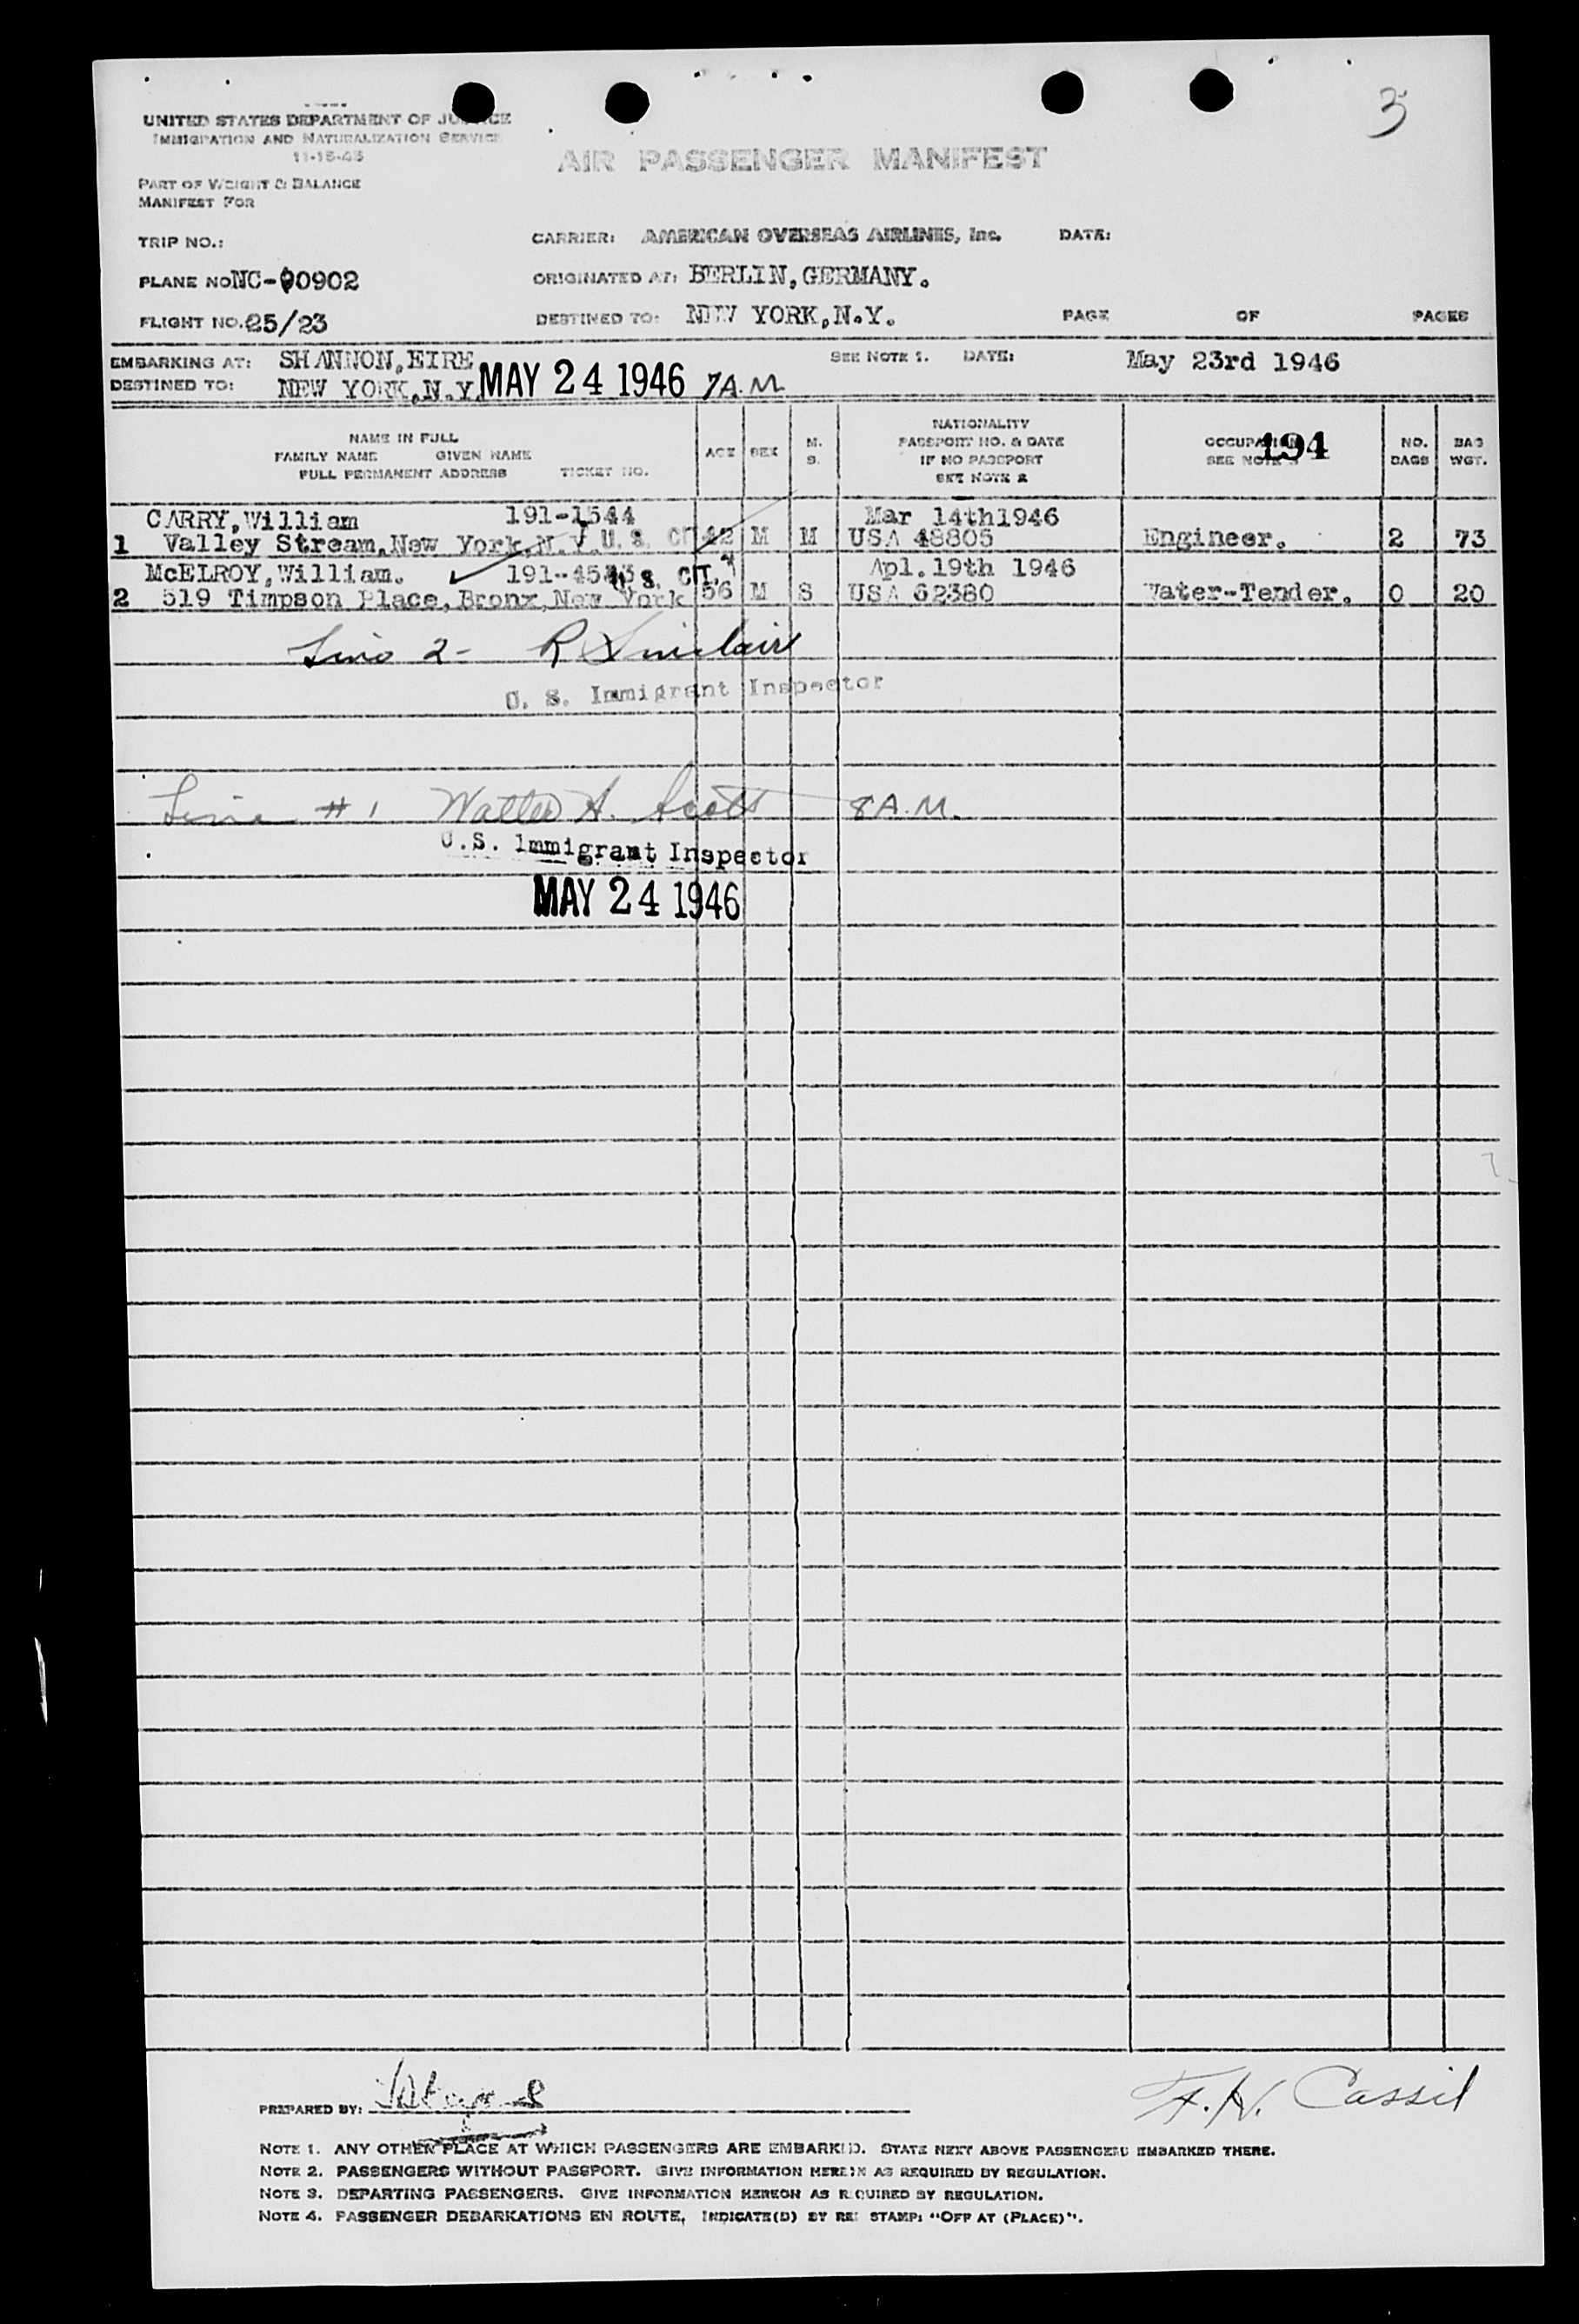 3
UNITED STATES DEPARTMENT OF JUSTICE
IMMIGRATION AND NATURALIZATION SERVICE
11-15-43
AIR PASSENGER MANIFEST
PART OF WEIGHT & BALANCE
MANIFEST FOR
TRIP NO.: CARRIER: AMERICAN OVERSEAS AIRLINES, Inc. DATE:
PLANE NO NC-90902 ORIGINATED AT: BERLIN, GERMANY.
FLIGHT NO. 25/23 DESTINED TO: NEW YORK, N.Y. PAGE OF PAGES
EMBARKING AT: SHANNON, EIRE SEE NOTE 1. DATE: May 23rd 1946
DESTINED TO: NEW YORK, N.Y. MAY 24 1946 7 A.M.
NAME IN FULL
FAMILY NAME GIVEN NAME
FULL PERMANENT ADDRESS TICKET NO. AGE SEX M. S. NATIONALITY PASSPORT NO. & DATE IF NO PASSPORT SEE NOTE 2 OCCUPATION SEE NOTE 3 194 NO. BAGS BAG WGT.
CARRY, William 191-1544 Mar 14th1946
1 Valley Stream, New York, N.Y. U.S. CIT 42 M M USA 48805 Engineer. 2 73
McELROY, William. U.S. CIT. Apl. 19th 1946
2 519 Timpson Place, Bronx, New York 56 M S USA 62380 Water-Tender. 0 20
Line 2 - R Sinclair
U. S. Immigrant Inspector
Line #1 Walter A. Scott 8 A.M.
U.S. Immigrant Inspector
MAY 24 1946
PREPARED BY:
F. H. Cassil
NOTE 1. ANY OTHER PLACE AT WHICH PASSENGERS ARE EMBARKED. STATE NEXT ABOVE PASSENGERS EMBARKED THERE.
NOTE 2. PASSENGERS WITHOUT PASSPORT. GIVE INFORMATION HEREIN AS REQUIRED BY REGULATION.
NOTE 3. DEPARTING PASSENGERS. GIVE INFORMATION HEREON AS REQUIRED BY REGULATION.
NOTE 4. PASSENGER DEBARKATIONS EN ROUTE, INDICATE(D) BY RE: STAMP: "OFF AT (PLACE)".